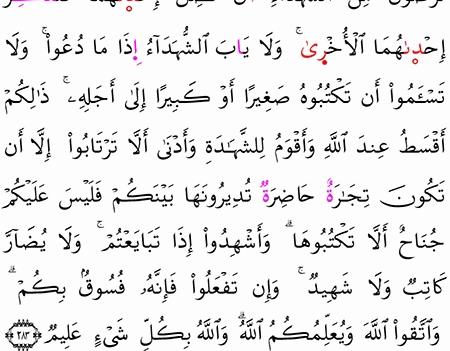 إِحْدَىٰهُمَا ٱلْأُخْرَىٰ ۚ وَلَا يَابَ ٱلشُّهَدَآءُ إِذَا مَا دُعُوا۟ ۚ وَلَا
تَسْـَٔمُوٓا۟ أَن تَكْتُبُوهُ صَغِيرًا أَوْ كَبِيرًا إِلَىٰٓ أَجَلِهِۦ ۚ ذَٰلِكُمْ
أَقْسَطُ عِندَ ٱللَّهِ وَأَقْوَمُ لِلشَّهَٰدَةِ وَأَدْنَىٰٓ أَلَّا تَرْتَابُوٓا۟ إِلَّآ أَن
تَكُونَ تِجَٰرَةٌ حَاضِرَةٌ تُدِيرُونَهَا بَيْنَكُمْ فَلَيْسَ عَلَيْكُمْ
جُنَاحٌ أَلَّا تَكْتُبُوهَا ۗ وَأَشْهِدُوٓا۟ إِذَا تَبَايَعْتُمْ ۚ وَلَا يُضَآرَّ
كَاتِبٌ وَلَا شَهِيدٌ ۚ وَإِن تَفْعَلُوا۟ فَإِنَّهُۥ فُسُوقٌۢ بِكُمْ ۗ
وَٱتَّقُوا۟ ٱللَّهَ وَيُعَلِّمُكُمُ ٱللَّهُ ۗ وَٱللَّهُ بِكُلِّ شَىْءٍ عَلِيمٌ ٢٨٣